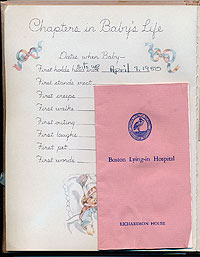 Chapters in Baby's Life
Dates when Baby—
sits up
First holds head erect April 7, 1950
First stands erect
First creeps
First walks
First outing
First laughs
First pet
First words
Boston Lying-in Hospital
RICHARDSON HOUSE